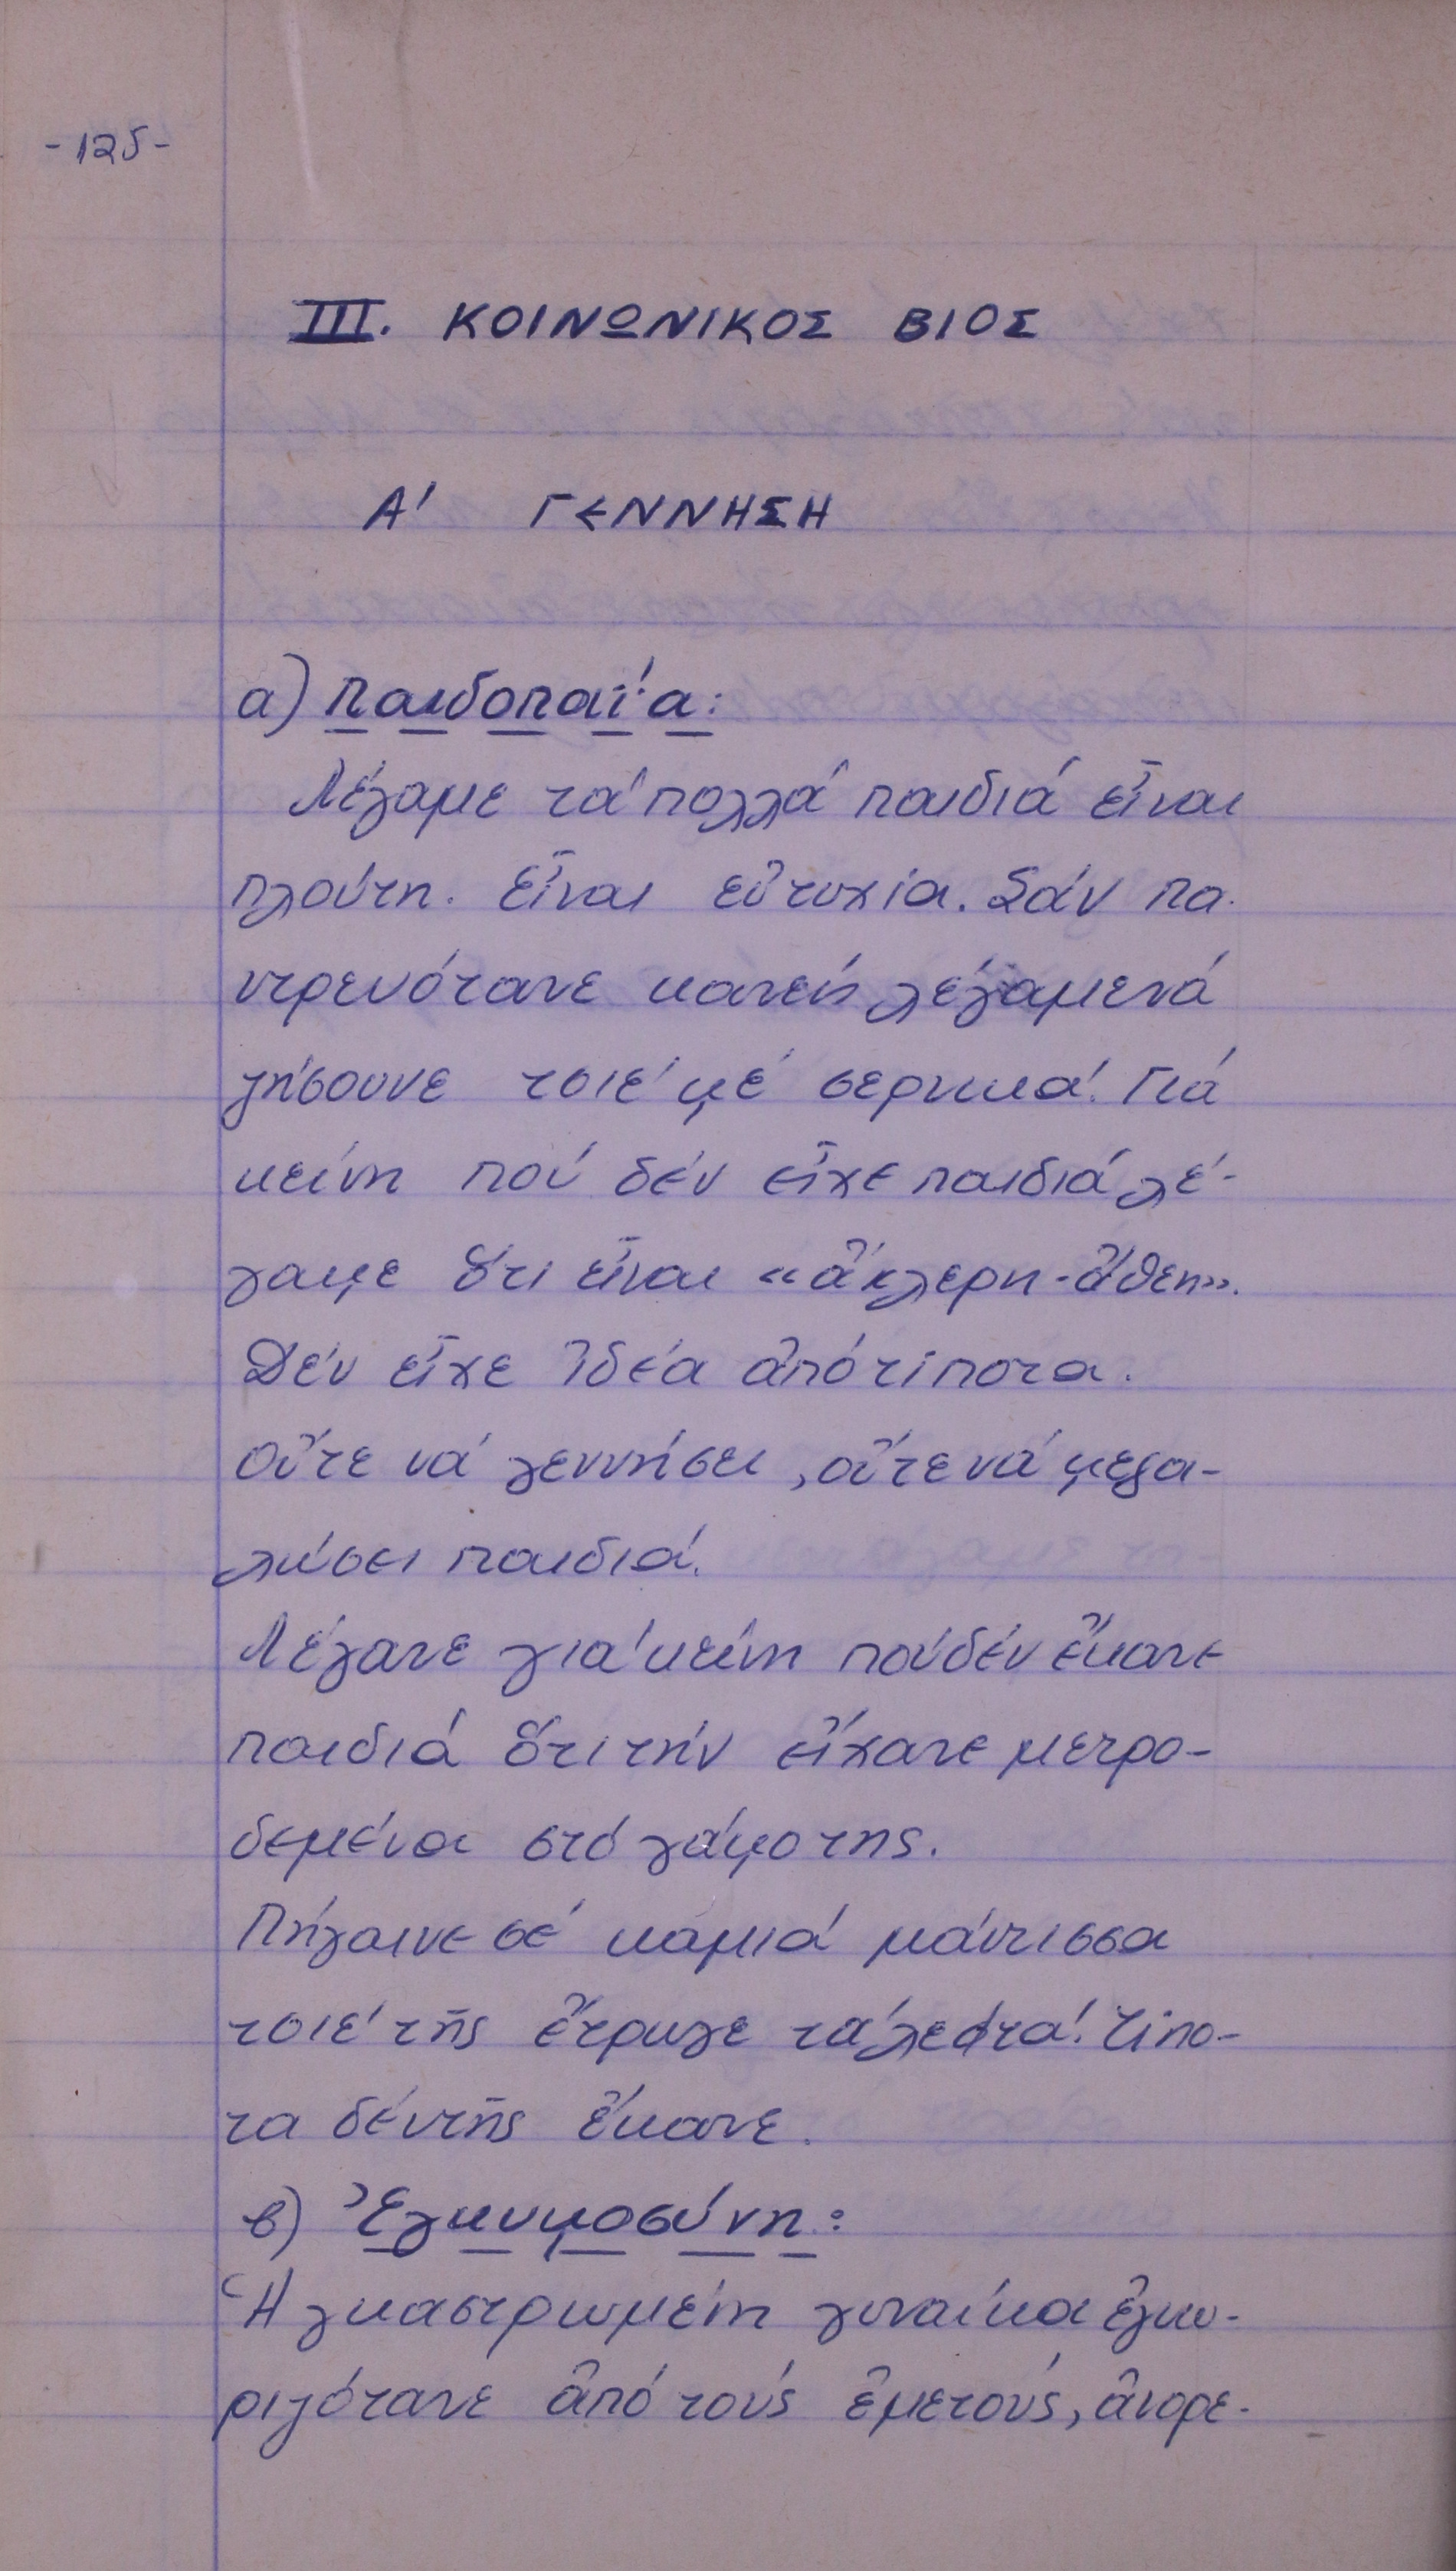 -125-
III. ΚΟΙΝΩΝΙΚΟΣ ΒΙΟΣ
Α' ΓΕΝΝΗΣΗ
α) Παιδοπαΐα:
Λέγαμε τά πολλά παιδιά εἶναι
πλούτη. Εἶναι εὐτυχία. Σάν πα-
ντρευότανε κανείς λέγαμε νά
ζήσουνε τσιέ μέ σερνικά. Γιά
κείνη πού δέν εἶχε παιδιά λέ-
γαμε ὅτι εἶναι «ἄκλερη - ἄθεη».
Δέν εἶχε ἰδέα ἀπό τίποτα.
Οὔτε νά γεννήσει, οὔτε νά μεγα-
λώσει παιδιά.
Λέγανε γιά κείνη πού δέν ἔκανε
παιδιά ὅτι τήν εἴχανε μετρο-
δεμένα στό γάμο της.
Πήγαινε σέ καμιά μάντισσα
τσιέ τῆς ἔτρωγε τά λεφτά. Τίπο-
τα δέν τῆς ἔκανε.
β) Ἐγκυμοσύνη:
Ἡ γκαστρωμένη γυναίκα ἐγνω-
ριζότανε ἀπό τούς ἐμετούς, ἀνορε-